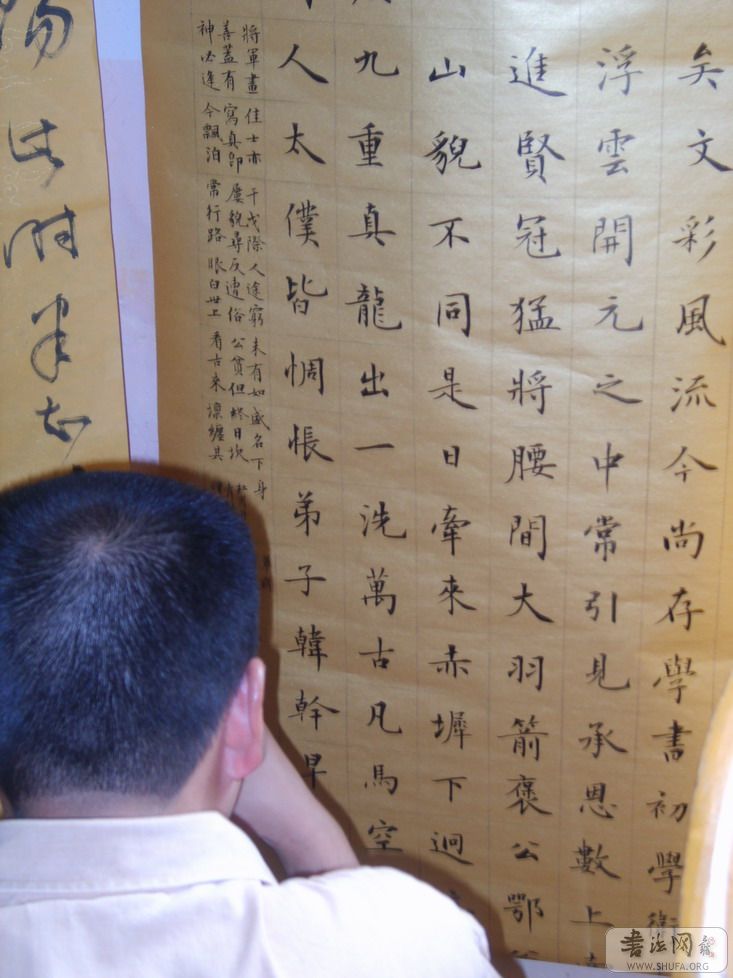 矣文彩風流今尚存學書初學衛
浮雲開元之中常引見承恩數上
進賢冠猛將腰間大羽箭褒公鄂
山貌不同是日牽來赤墀下迥
九重真龍出一洗萬古凡馬空
人太僕皆惆悵弟子韓幹早
將軍畫佳士亦干戈際人途窮未有如盛名下身
善蓋有寫真即屢貌尋反遭俗公貧但終日坎
神必逢今飄泊常行路眼白世上看古來壈纏其
此時
書法网
WWW.SHUFA.ORG